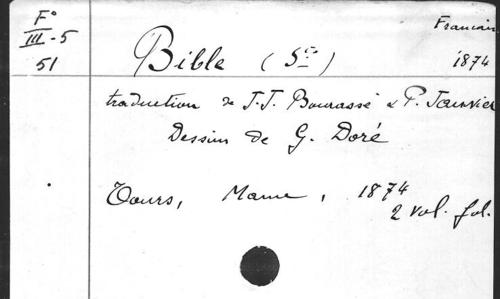 F°
III-5
51
Francais
1874
Bible (Ste)
traduction de J.J. Bourassé & P. Janvier
Dessins de G. Doré
Tours, Mame, 1874
2 vol. fol.